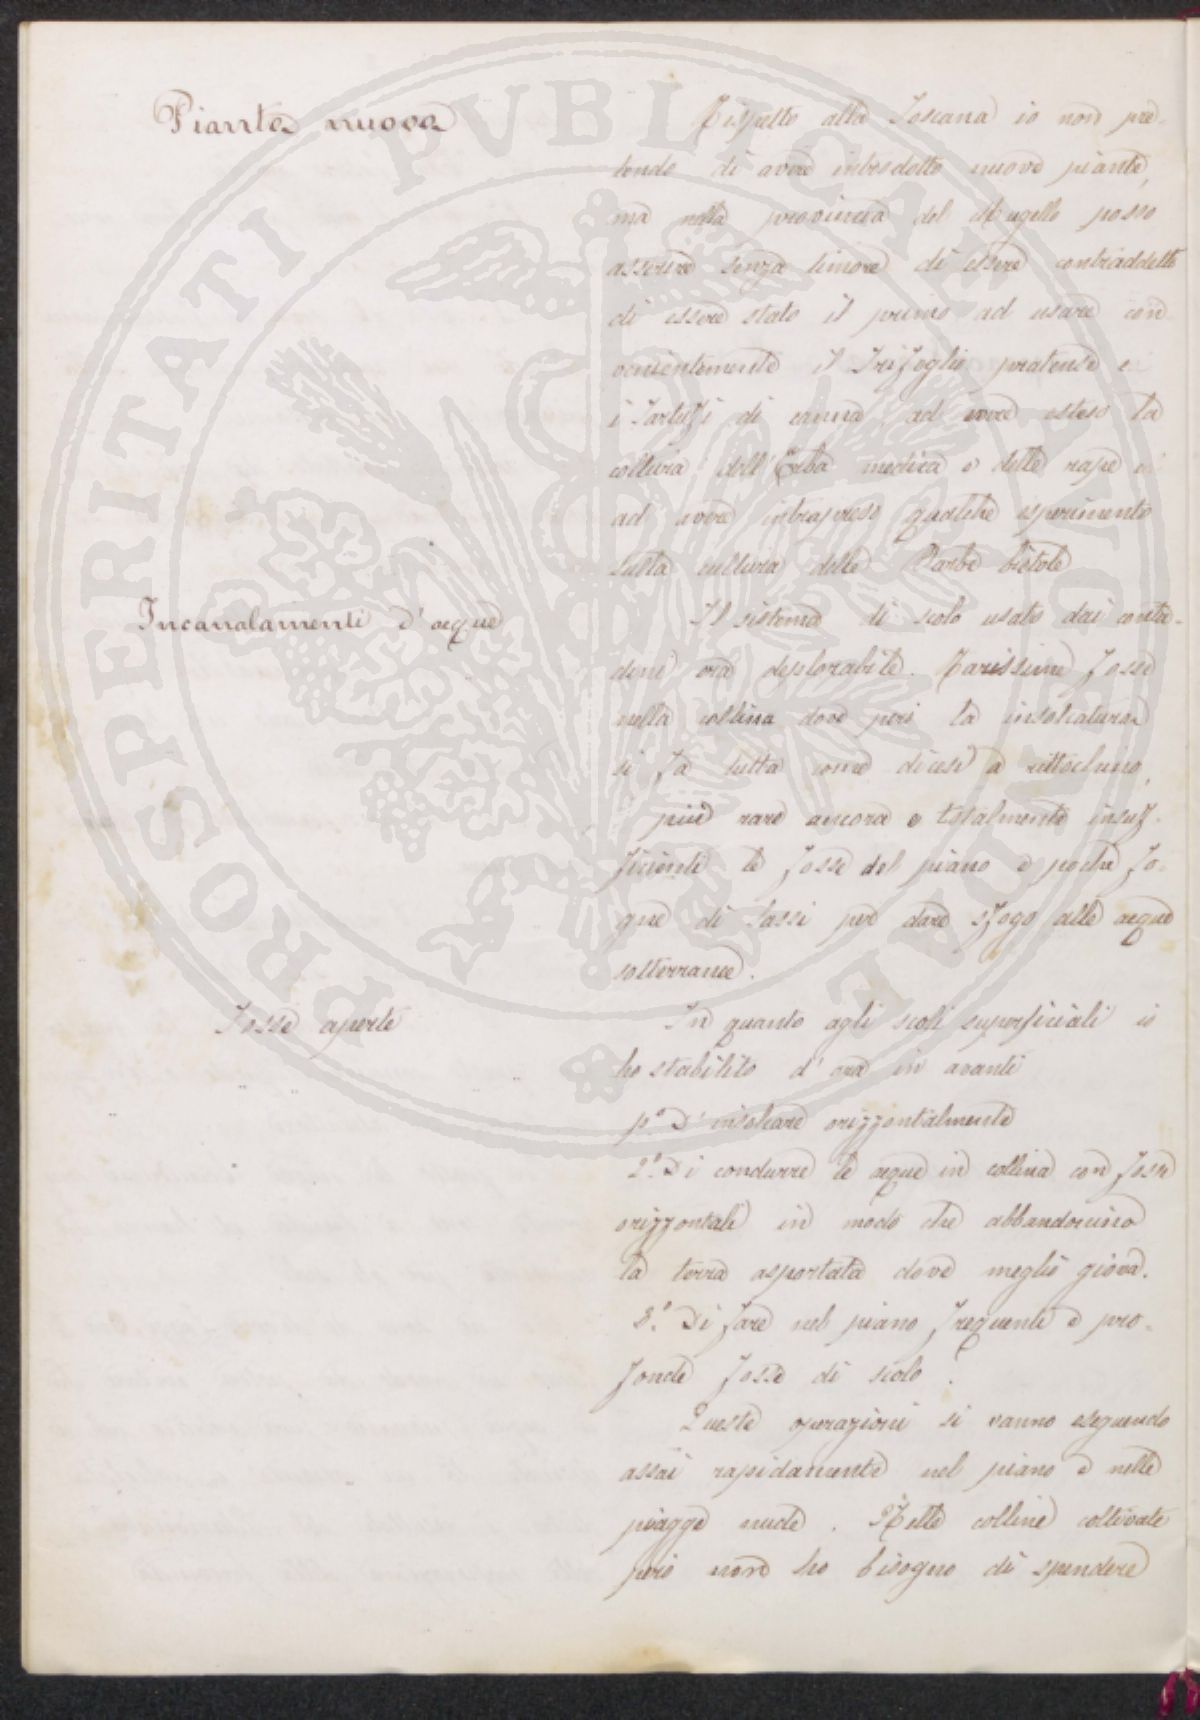 PROSPERITATI PVBLICAE AVGENDAE
Piante nuove
Rispetto alla Toscana io non pre-
tendo di avere introdotto nuove piante,
ma nella provincia del Mugello posso
asserire senza timore di essere contraddetto
di essere stato il primo ad usare con
venientemente il Trifoglio pratense e
i Tartufi di canna, ad avere esteso la
coltura dell'Erba medica e delle rape e
ad avere intrapreso qualche esperimento
sulla cultura delle Barbe bietole
Incanalamenti d'acque
Il sistema di scolo usato dai conta-
dini era deplorabile. Rarissime fosse
nella collina dove però la insolcatura
si fa tutta come dicesi a rittochino,
più rare ancora e totalmente insuf-
ficienti le fosse del piano e poche fo-
gne di sassi per dare sfogo alle acque
sotterranee.
Fosse aperte
In quanto agli scoli superficiali io
ho stabilito d'ora in avanti
p.o D'insolcare orizzontalmente
2.o Di condurre le acque in collina con fosse
orizzontali in modo che abbandonino
la terra asportata dove meglio giova.
3.o Di fare nel piano frequenti e pro-
fonde fosse di scolo.
Queste operazioni si vanno eseguendo
assai rapidamente nel piano e nelle
piagge nude. Nelle colline coltivate
però non ho bisogno di spendere